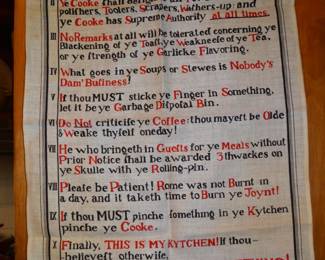 II Ye Cooke
polifhers, Toolers, Scrapers, Wafhers-up: and
ye Cooke has Supreme Authority at all times.
III No Remarks at all will be tolerated concerning ye
Blackening of ye Toaft, ye Weaknefs of ye Tea,
or ye ftrength of ye Garlicke Flavoring.
IV What goes in ye Soups or Stewes is Nobody's
Dam' Bufinefs!
V If thou MUST sticke ye Finger in Something,
let it be ye Garbage Difpofal Bin.
VI Do Not criticife ye Coffee: thou mayeft be Olde
& Weake thyfelf oneday!
VII He who bringeth in Guefts for ye Meales without
Prior Notice fhall be awarded 3 thwackes on
ye Skulle with ye Rolling-pin.
VIII Pleafe be Patient! Rome was not Burnt in
a day, and it taketh time to Burn ye Joynt!
IX If thou MUST pinche fomething in ye Kytchen
pinche ye Cooke.
X Finally, THIS IS MY KYTCHEN! If thou-
-believeft otherwife,